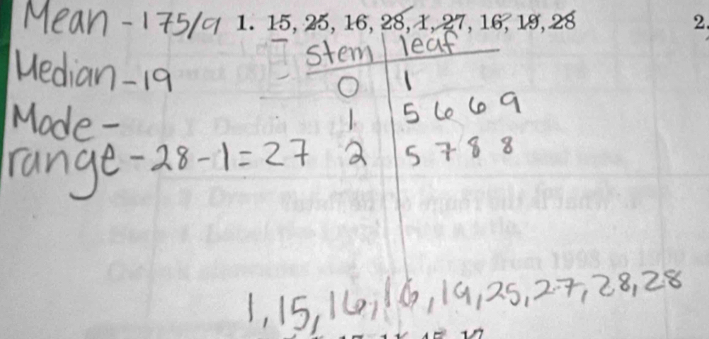 Mean - 175/9 1. 15, 25, 16, 28, 1, 27, 16, 19, 28 2.
Stem leaf
Median - 19 0 1
Mode - 1 5 6 6 9
range - 28 - 1 = 27 2 5 7 8 8
1, 15, 16, 16, 19, 25, 27, 28, 28